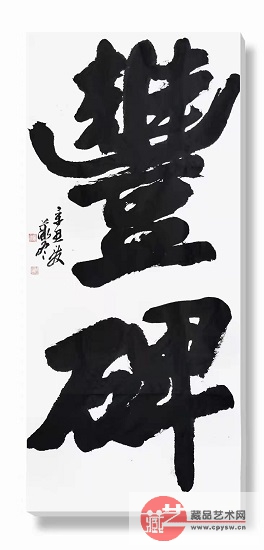 豐碑
辛丑
藏艺
藏品艺术网
www.cpysw.cn